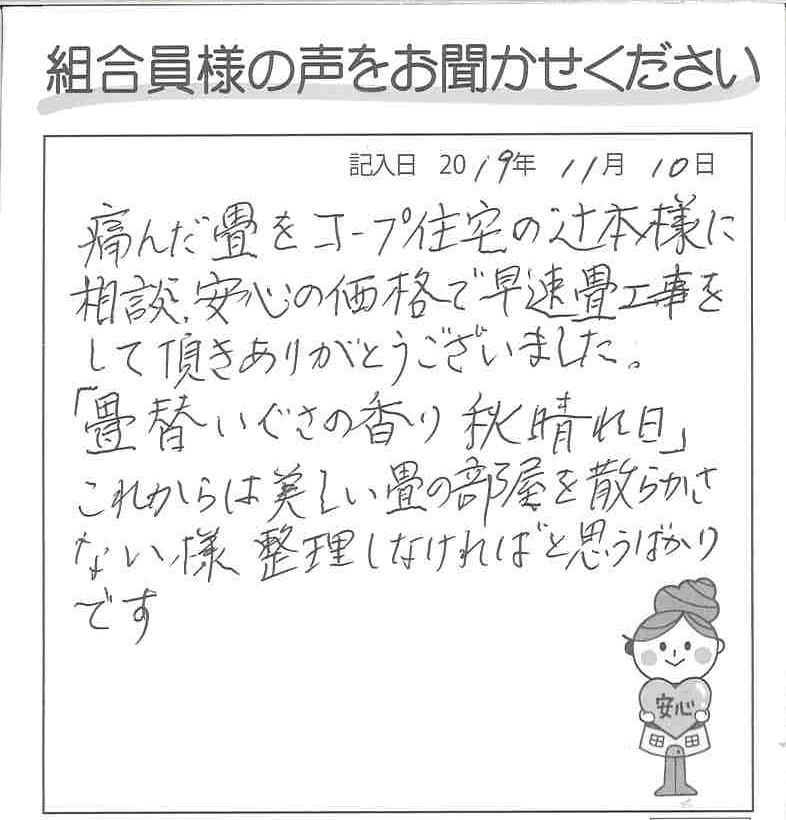 組合員様の声をお聞かせください
記入日 2019年 11月 10日
痛んだ畳をコープ住宅の辻本様に
相談、安心の価格で早速畳工事を
して頂きありがとうございました。
「畳替いぐさの香り 秋晴れ日」
これからは美しい畳の部屋を散らかさ
ない様 整理しなければと思うばかり
です
安心